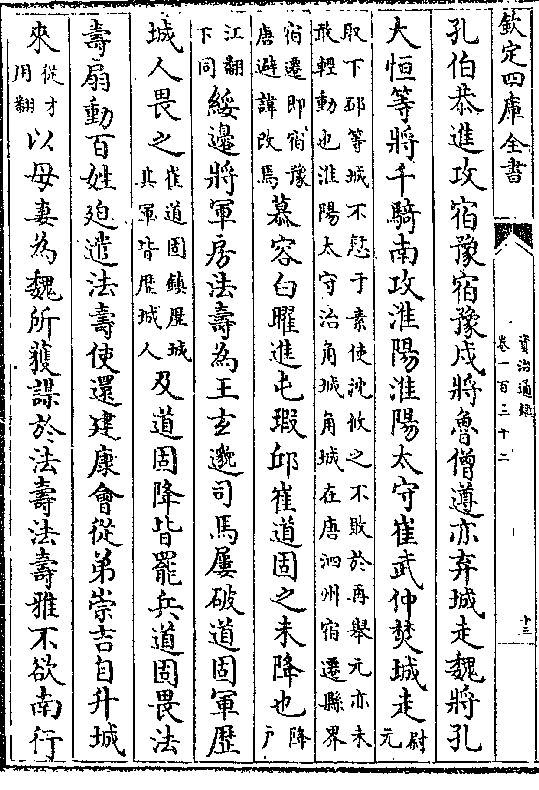 欽定四庫全書
資治通鑑
卷一百三十二
十三
孔伯恭進攻宿豫宿豫戍將魯僧遵亦弃城走魏將孔
大恒等將千騎南攻淮陽淮陽太守崔武仲焚城走尉元
取下邳等城不愆于素使沈攸之不敗於再舉元亦未
敢輕動也淮陽太守治角城角城在唐泗州宿遷縣界
宿遷即宿豫唐避諱改焉慕容白曜進屯瑕邱崔道固之未降也降户
江翻下同綏邊將軍房法壽為王玄邈司馬屢破道固軍歷
城人畏之崔道固鎮歷城其軍皆歷城人及道固降皆罷兵道固畏法
壽扇動百姓迫遣法壽使還建康會從弟崇吉自升城
來從才用翻以母妻為魏所獲謀於法壽法壽雅不欲南行